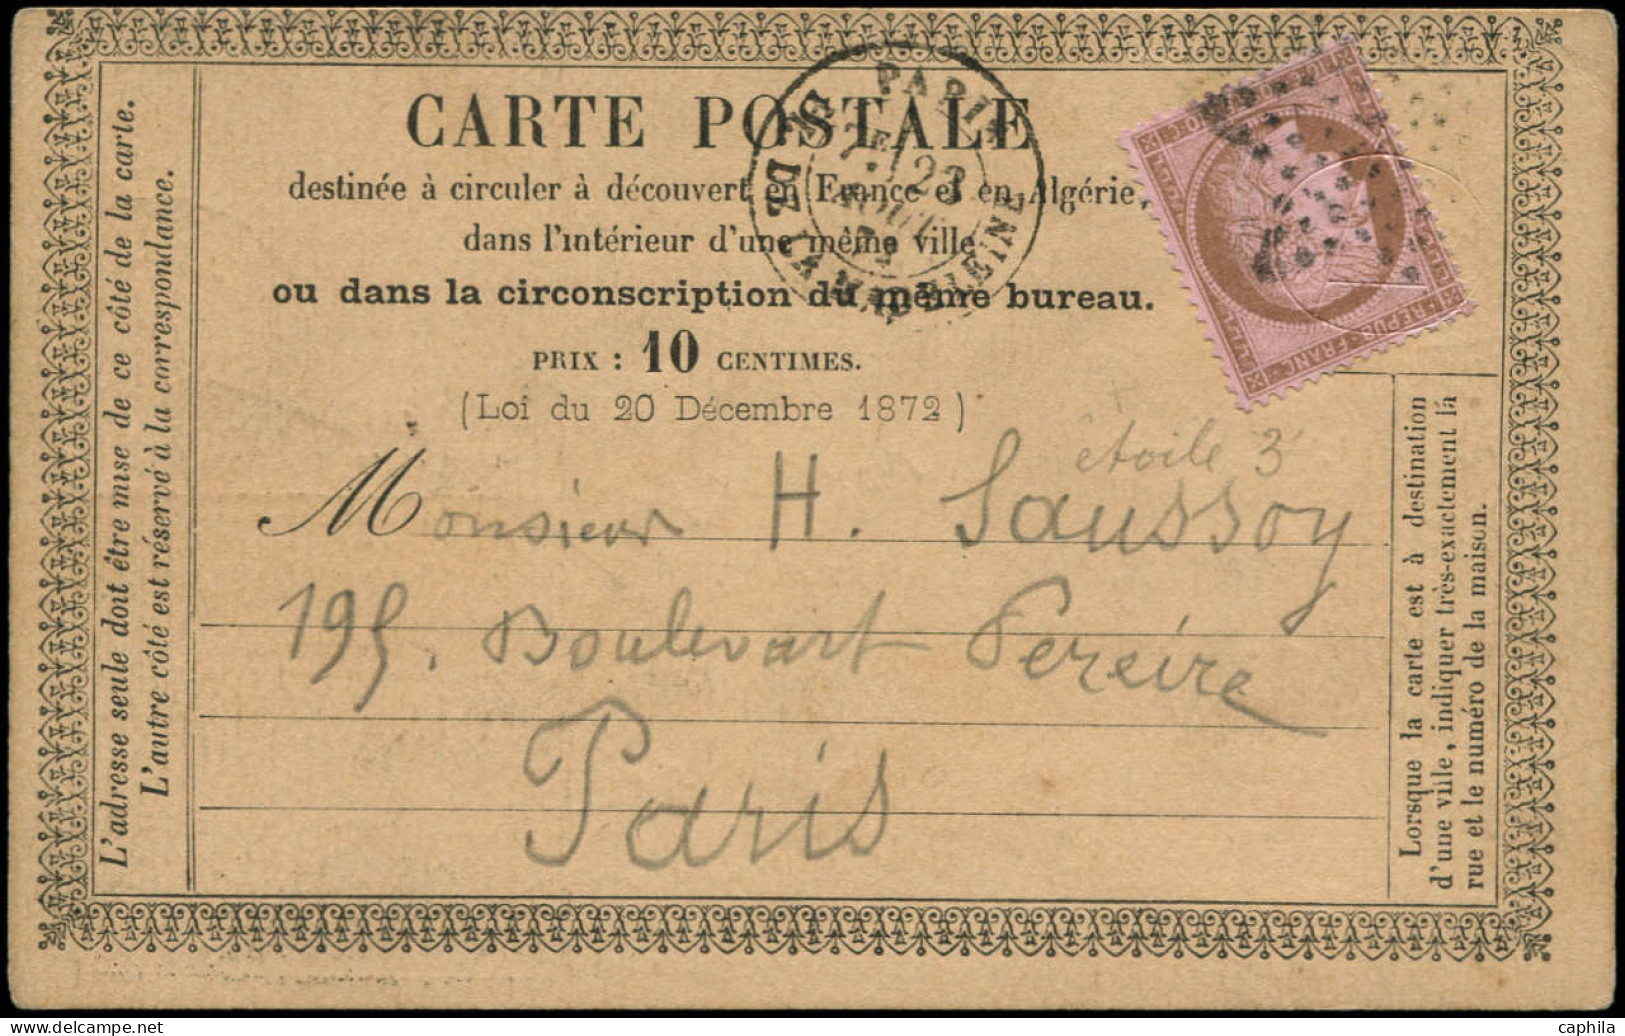 CARTE POSTALE
destinée à circuler à découvert en France et en Algérie,
dans l'intérieur d'une même ville
ou dans la circonscription du même bureau.
PRIX : 10 CENTIMES.
(Loi du 20 Décembre 1872)
PARIS
PL. DE LA MADELEINE
7E/ 23
AOUT
REPUB. FRANC.
étoile 3
Monsieur H. Saussoy
195. Boulevart Pereire
Paris
L'adresse seule doit être mise de ce côté de la carte.
L'autre côté est réservé à la correspondance.
Lorsque la carte est à destination
d'une ville, indiquer très-exactement la
rue et le numéro de la maison.
caphila - delcampe.net